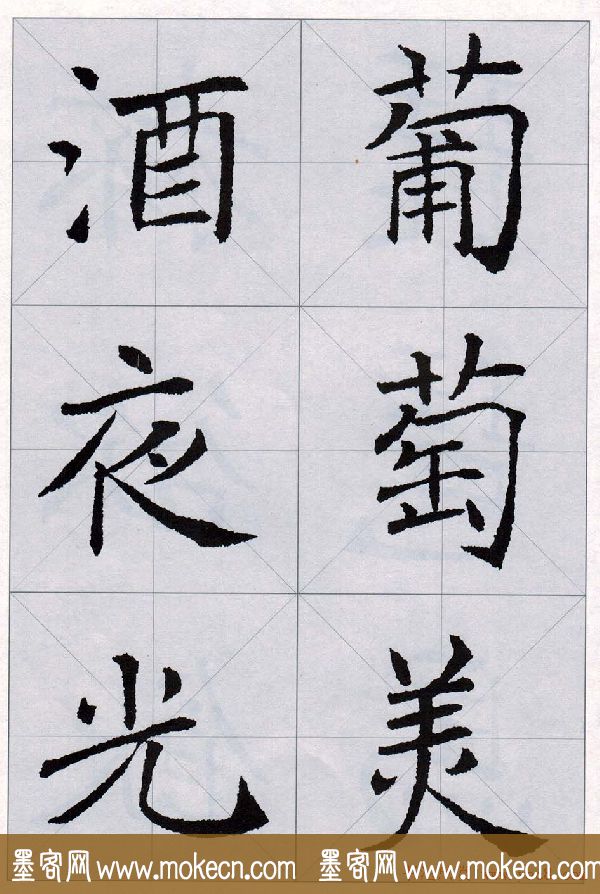 葡萄美
酒夜光
墨客网 www.mokecn.com 墨客网 www.mokecn.com